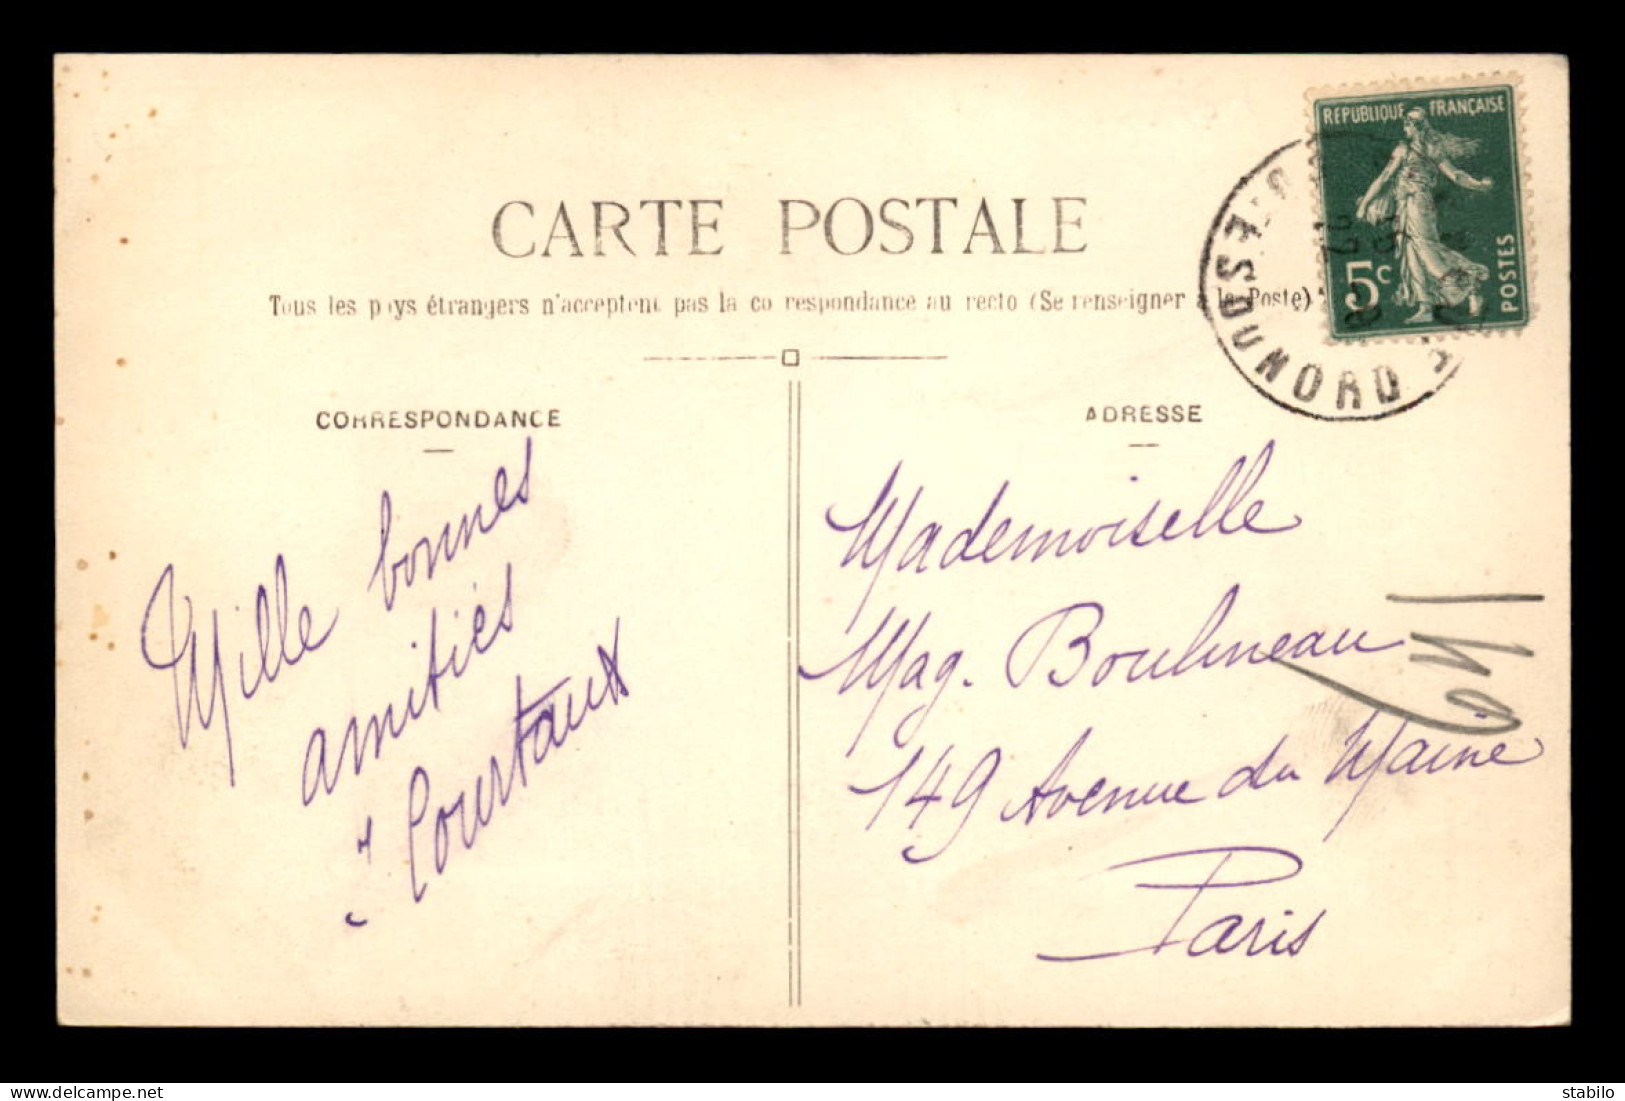 CARTE POSTALE
Tous les pays étrangers n'acceptent pas la correspondance au recto (Se renseigner à la Poste)
CORRESPONDANCE
ADRESSE
REPUBLIQUE FRANÇAISE
5c
POSTES
NORD
Mille bonnes
amitiés
Courtaux
Mademoiselle
Mag. Boulineau
149 Avenue du Maine
Paris
641
stabilo